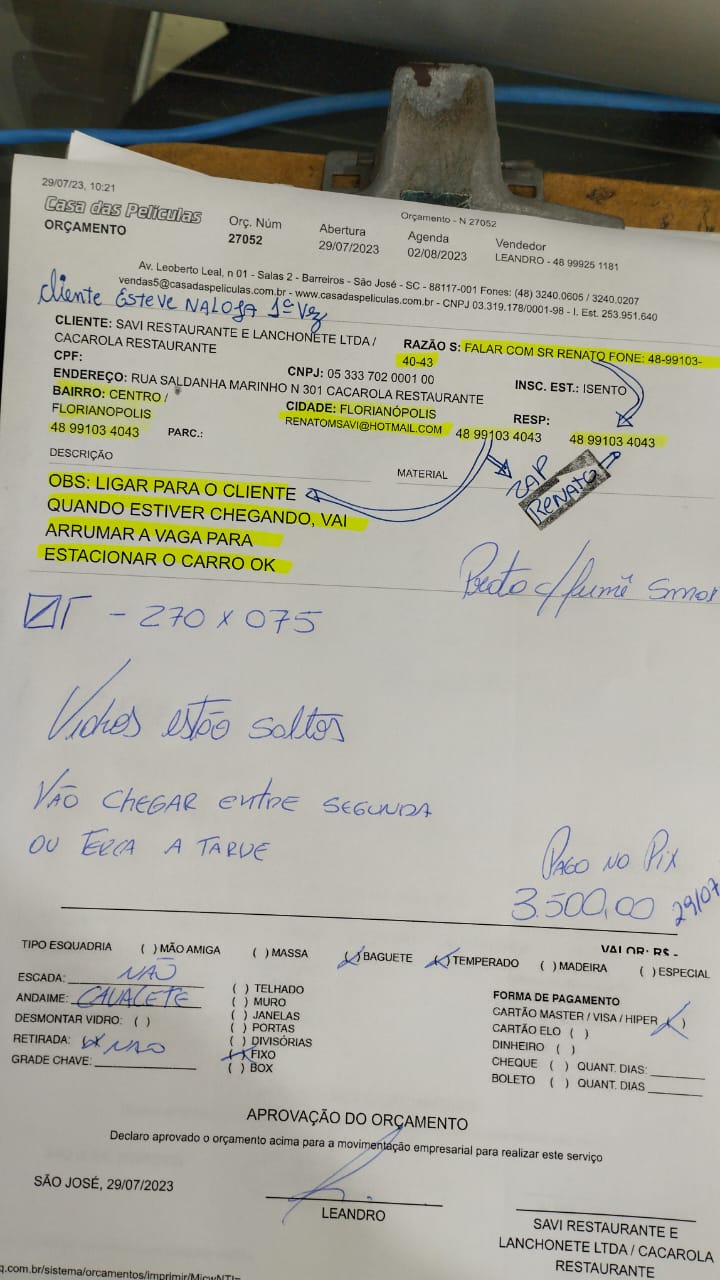 29/07/23, 10:21
Orçamento - N 27052
Casa das Películas
ORÇAMENTO
Orç. Núm
27052
Abertura
29/07/2023
Agenda
02/08/2023
Vendedor
LEANDRO - 48 99925 1181
Av. Leoberto Leal, n 01 - Salas 2 - Barreiros - São José - SC - 88117-001 Fones: (48) 3240.0605 / 3240.0207
vendas5@casadaspeliculas.com.br - www.casadaspeliculas.com.br - CNPJ 03.319.178/0001-98 - I. Est. 253.951.640
cliente ESTEVE NA LOJA 1ª VEZ
CLIENTE: SAVI RESTAURANTE E LANCHONETE LTDA /
CACAROLA RESTAURANTE
RAZÃO S: FALAR COM SR RENATO FONE: 48-99103-
40-43
CPF:
CNPJ: 05 333 702 0001 00
INSC. EST.: ISENTO
ENDEREÇO: RUA SALDANHA MARINHO N 301 CACAROLA RESTAURANTE
BAIRRO: CENTRO /
FLORIANOPOLIS
CIDADE: FLORIANÓPOLIS
RENATOMSAVI@HOTMAIL.COM
48 99103 4043
RESP:
48 99103 4043
48 99103 4043
PARC.:
DESCRIÇÃO
MATERIAL
ZAP
RENATO
OBS: LIGAR PARA O CLIENTE
QUANDO ESTIVER CHEGANDO, VAI
ARRUMAR A VAGA PARA
ESTACIONAR O CARRO OK
c/fumê
- 270 x 075
Vidros estão soltos
VÃO CHEGAR entre SEGUNDA
OU TERCA A TARDE
PAGO NO PIX
3.500,00 29/07
VALOR: R$ -
TIPO ESQUADRIA ( ) MÃO AMIGA ( ) MASSA (X) BAGUETE (X) TEMPERADO ( ) MADEIRA ( ) ESPECIAL
ESCADA: NÃO
ANDAIME: CAVALETE
DESMONTAR VIDRO: ( )
RETIRADA: (X) NÃO
GRADE CHAVE:
( ) TELHADO
( ) MURO
( ) JANELAS
( ) PORTAS
( ) DIVISÓRIAS
(X) FIXO
( ) BOX
FORMA DE PAGAMENTO
CARTÃO MASTER / VISA / HIPER (X)
CARTÃO ELO ( )
DINHEIRO ( )
CHEQUE ( ) QUANT. DIAS:
BOLETO ( ) QUANT. DIAS
APROVAÇÃO DO ORÇAMENTO
Declaro aprovado o orçamento acima para a movimentação empresarial para realizar este serviço
SÃO JOSÉ, 29/07/2023
LEANDRO
SAVI RESTAURANTE E
LANCHONETE LTDA / CACAROLA
RESTAURANTE
q.com.br/sistema/orcamentos/imprimir/MjcwNTI=